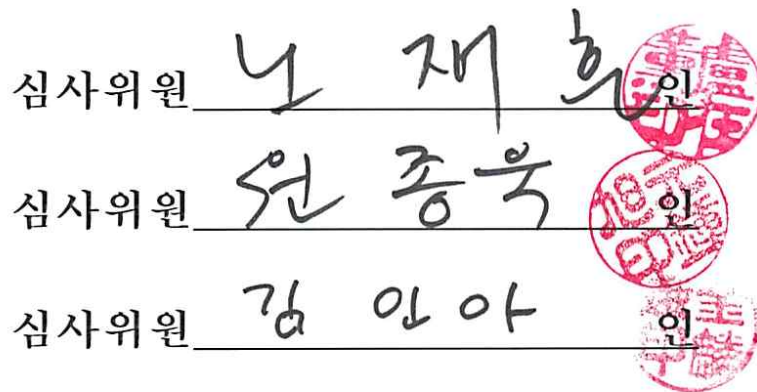 심사위원 노 재 훈 인
심사위원 원 종 욱 인
심사위원 김 인 아 인